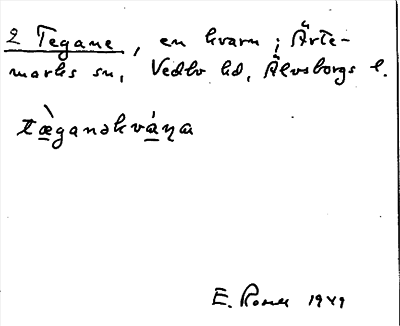 2 Tegane, en kvarn i Ärte-
marks sn, Vedbo hd, Älvsborgs l.
tæ̀ganəkváṇa
E. 1949